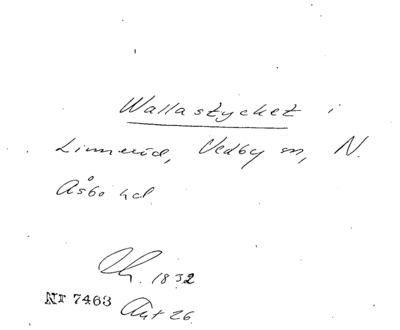 Wallastycket i
Linneröd, Vedby sn, N.
Åsbo hd.
1832
Nr 7463 Akt 26